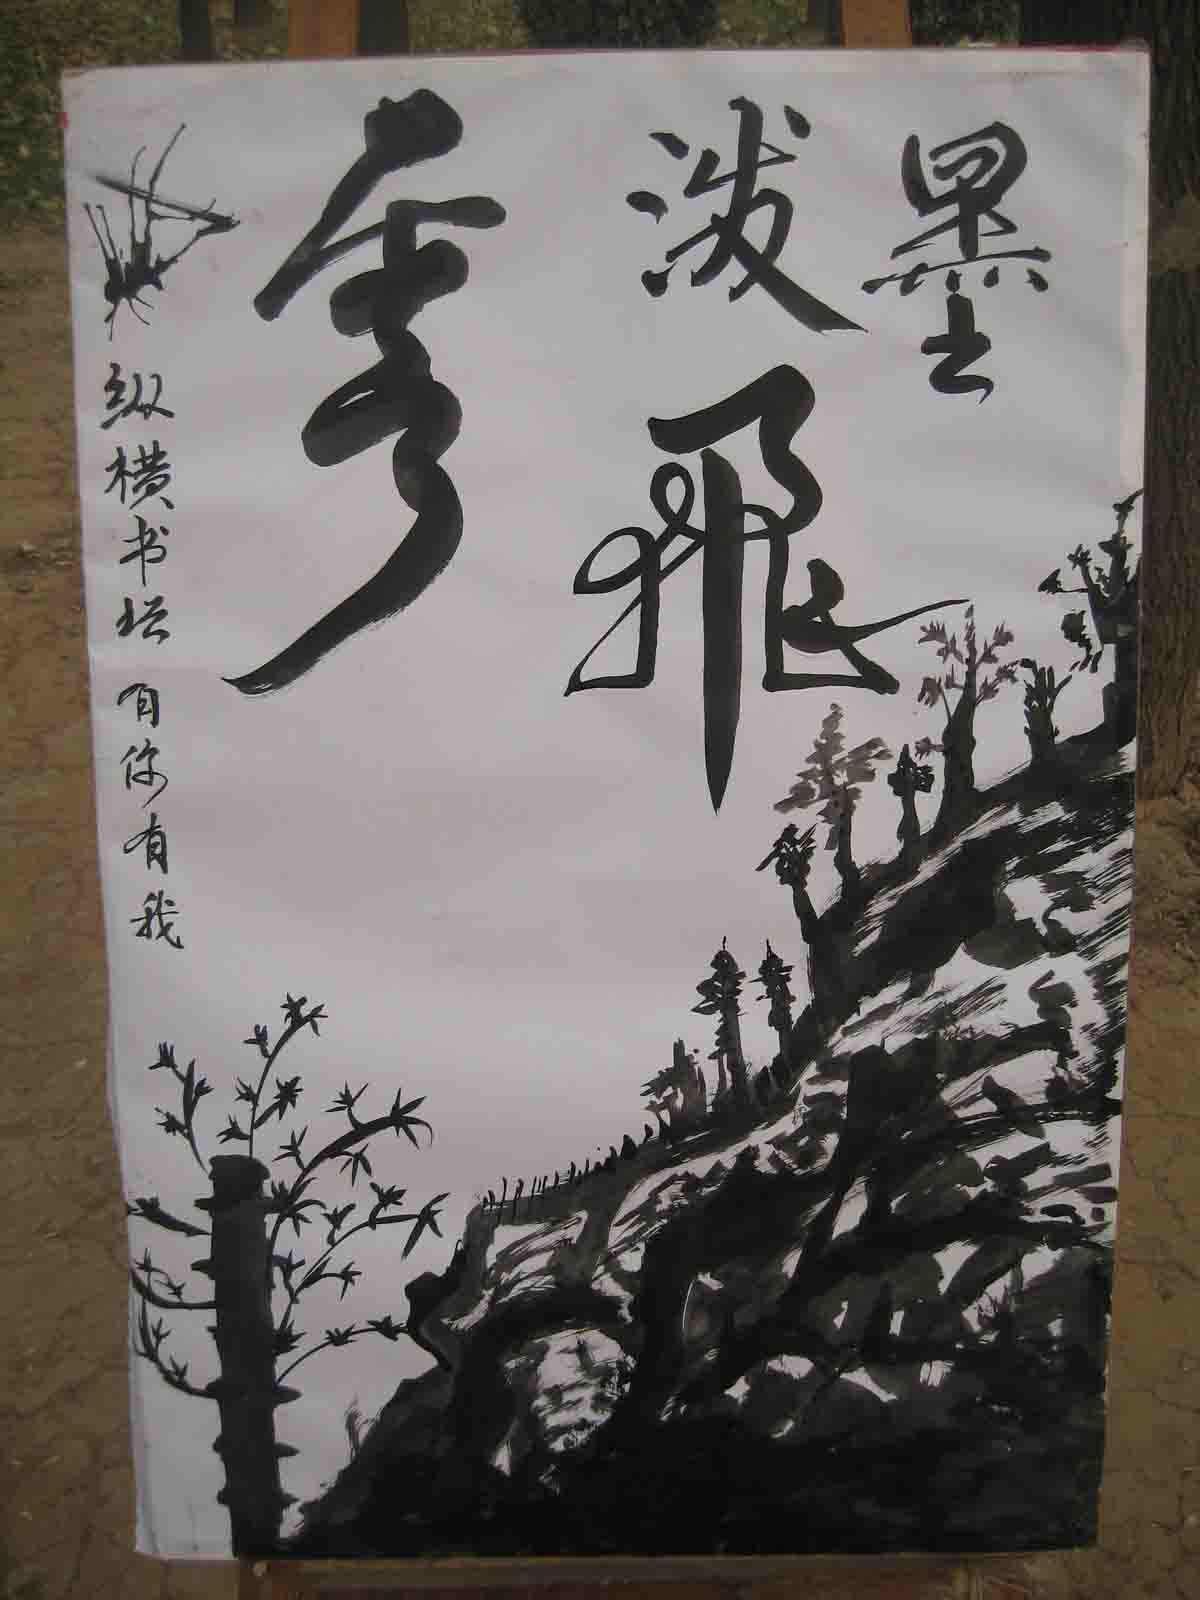 泼墨
飛
秀
纵横书坛 有你有我